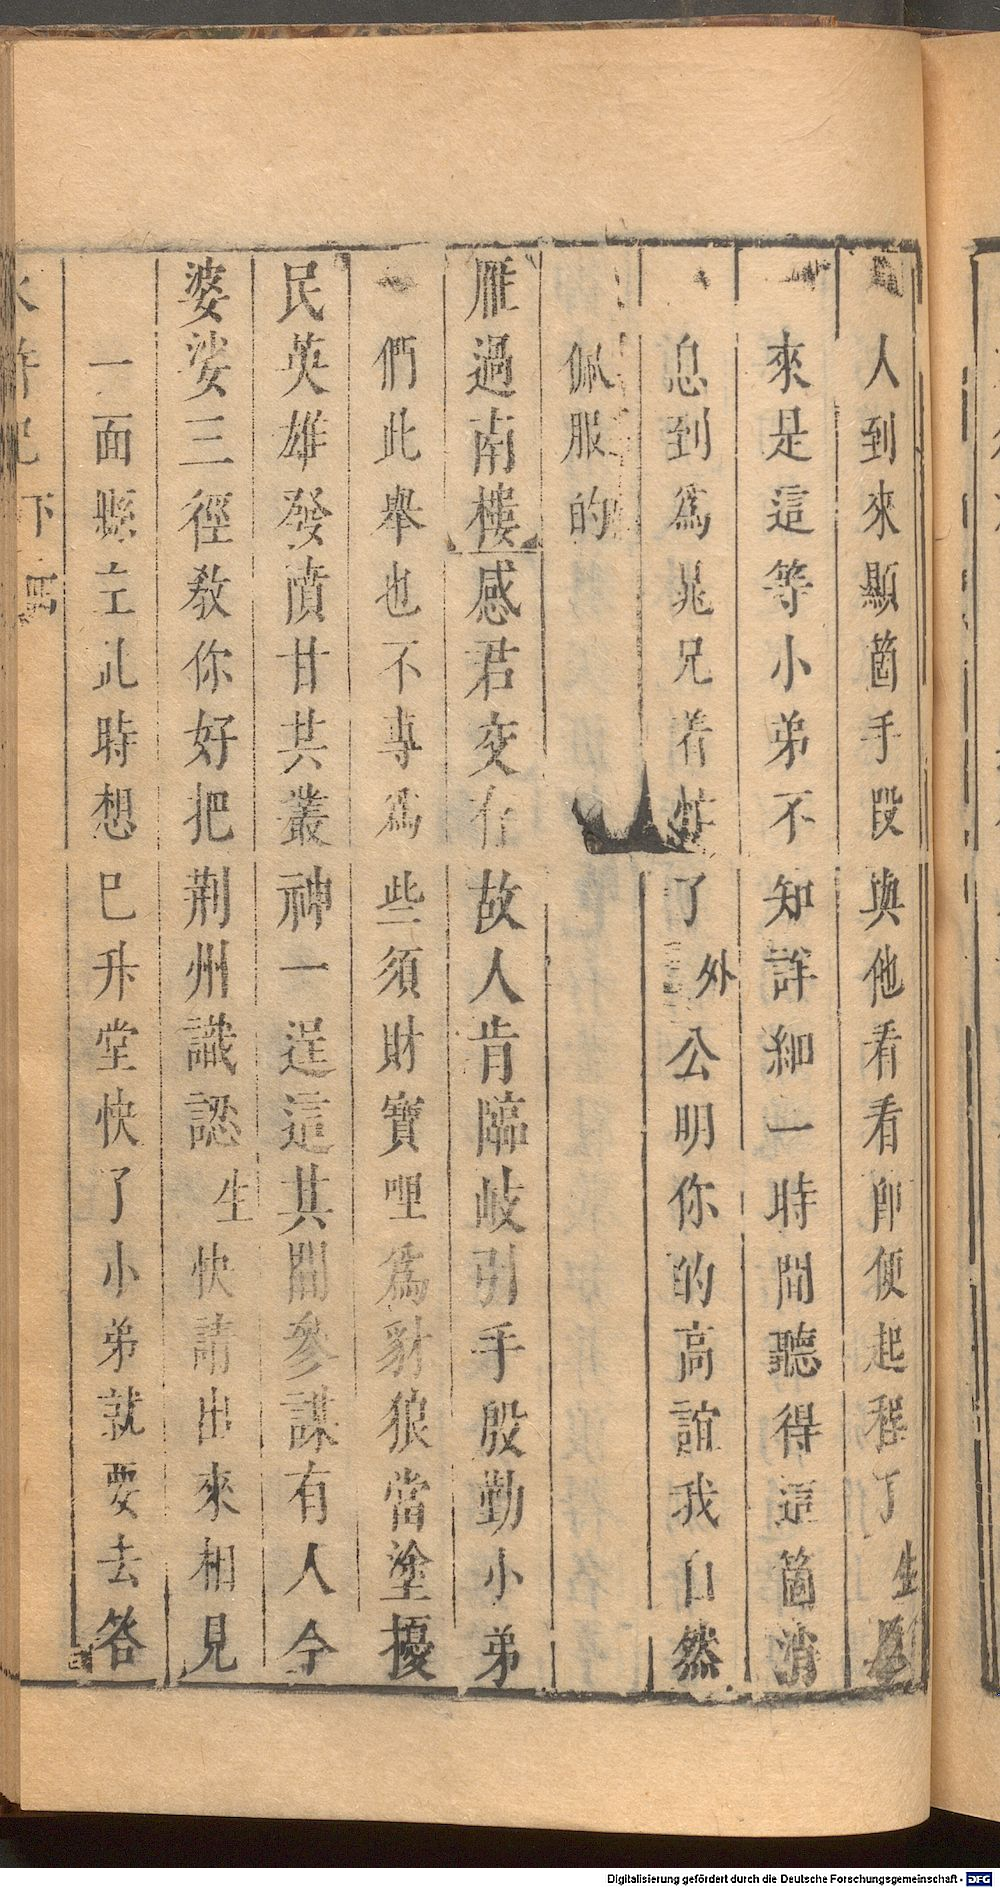 人到來顯箇手叚與他看看卽便起程了生原
來是這等小弟不知詳細一時間聽得這箇消
息到爲晁兄着忙了外公明你的高誼我自然
佩服的
雁過南樓感君交有故人肯臨岐引手殷勤小弟
們此舉也不專爲些須財寶哩爲豺狼當塗擾
民英雄發憤甘共叢神一逞這其間參謀有人今
婆娑三徑敎你好把荆州識認生快請出來相見
一面縣主此時想已升堂快了小弟就要去答
水滸記下
Digitalisierung gefördert durch die Deutsche Forschungsgemeinschaft - DFG